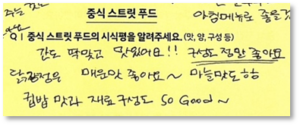 아침메뉴로 좋을것
중식 스트릿 푸드
Q1 중식 스트릿 푸드의 시식평을 알려주세요. (맛, 양, 구성 등)
간도 딱맞고 맛있어요!! 구성도 정말 좋아요
매운맛 좋아요~ 마늘맛도
컵밥 맛과 재료구성도 so Good~